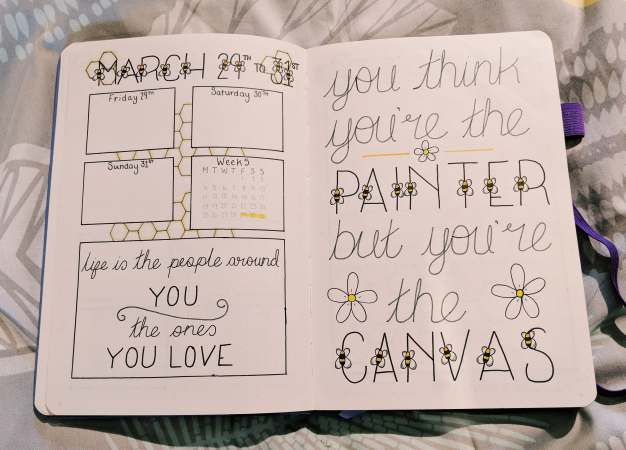 MARCH 29TH TO 31ST
Friday 29th
Saturday 30th
Sunday 31st
Week 5
M T W T F S S
life is the people around
YOU
the ones
YOU LOVE
you think
you're the
PAINTER
but you're
the
CANVAS